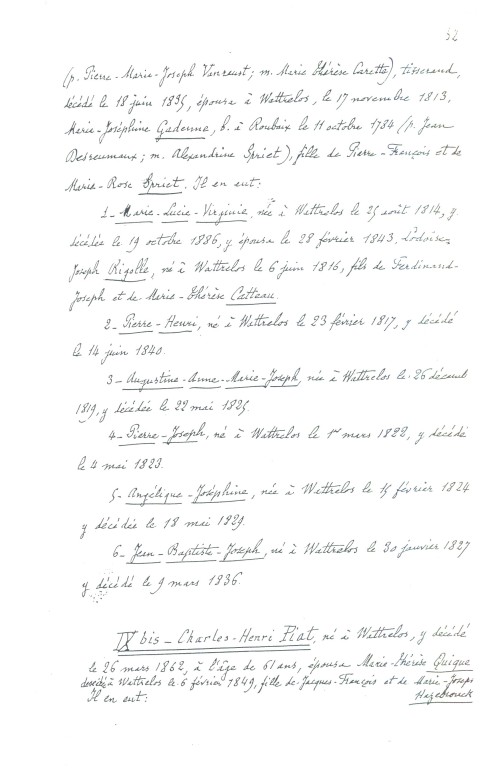 52
(p. Pierre-Marie-Joseph Vanraust; m. Marie Thérèse Carette), tisserand,
décédé le 18 juin 1835, épousa à Wattrelos, le 17 novembre 1813,
Marie-Joséphine Gadenne, b. à Roubaix le 11 octobre 1784 (p. Jean
Desreumaux; m. Alexandrine Spriet), fille de Pierre-François et de
Marie-Rose Spriet. Il en eut:
1_ Marie-Lucie-Virginie, née à Wattrelos le 25 août 1814, y
décédée le 19 octobre 1886, y épousa le 28 février 1843,
Joseph Rigolle, né à Wattrelos le 6 juin 1816, fils de Ferdinand-
Joseph et de Marie-Thérèse Catteau.
2_ Pierre-Henri, né à Wattrelos le 23 février 1817, y décédé
le 14 juin 1840.
3_ Augustine-Anne-Marie-Joseph, née à Wattrelos le 26 décemb
1819, y décédée le 22 mai 1825.
4_ Pierre-Joseph, né à Wattrelos le 1er mars 1822, y décédé
le 4 mai 1823.
5_ Angélique-Joséphine, née à Wattrelos le 15 février 1824
y décédée le 18 mai 1829.
6_ Jean-Baptiste-Joseph, né à Wattrelos le 30 janvier 1827
y décédé le 9 mars 1836.
IX bis _ Charles-Henri Piat, né à Wattrelos, y décédé
le 26 mars 1862, à l'âge de 61 ans, épousa Marie-Thérèse Quique
décédée à Wattrelos le 6 février 1849, fille de Jacques-François et de Marie-Joseph
Il en eut: Hazebrouck